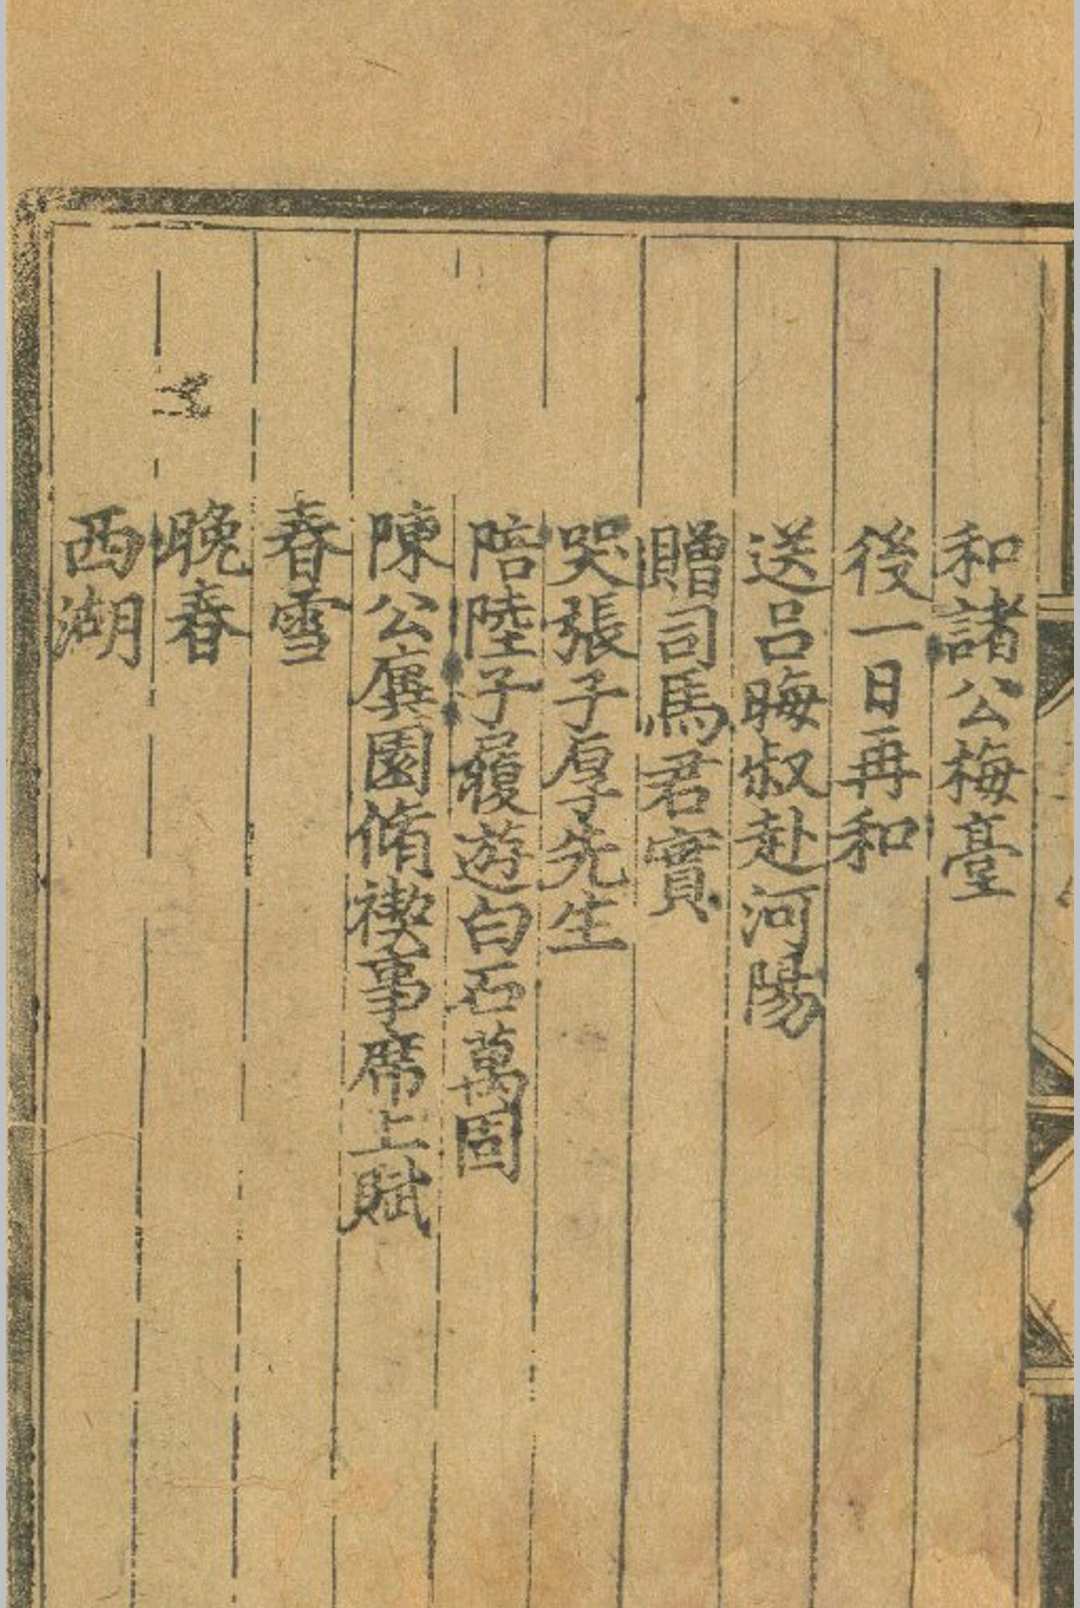 和諸公梅臺
後一日再和
送吕晦叔赴河陽
贈司馬君實
哭張子厚先生
陪陸子履遊白石萬固
陳公廙園脩禊事席上賦
春雪
晚春
西湖